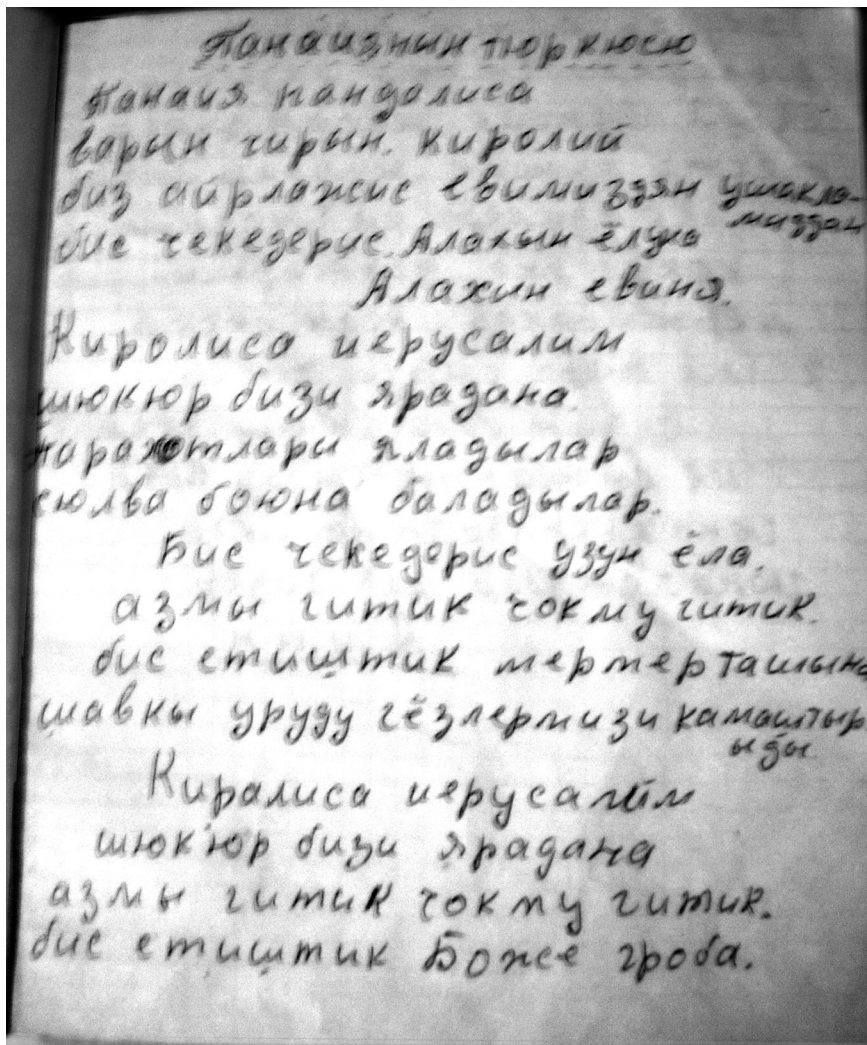 Панаизнын тюркюсю
Панаия пандалиса
варын чирын. киролий
биз айрлажис евимиздян ушакла-
миздан
бис чекедерис. Алахын ёлуна
Алахин евиня.
Киролиса иерусалим
шюкюр бизи ярадана.
карахотлары яладылар
сюлва боюна баладылар.
Бис чекедерис узун ёла.
азмы гитик чокму гитик.
бис етиштик мермер ташына
шавкы уруду гёзлермизи камаштыр
ыды.
Киралиса иерусалим
шюкюр бизи ярадана
азмы гитик чокму гитик.
бис етиштик Боже гроба.